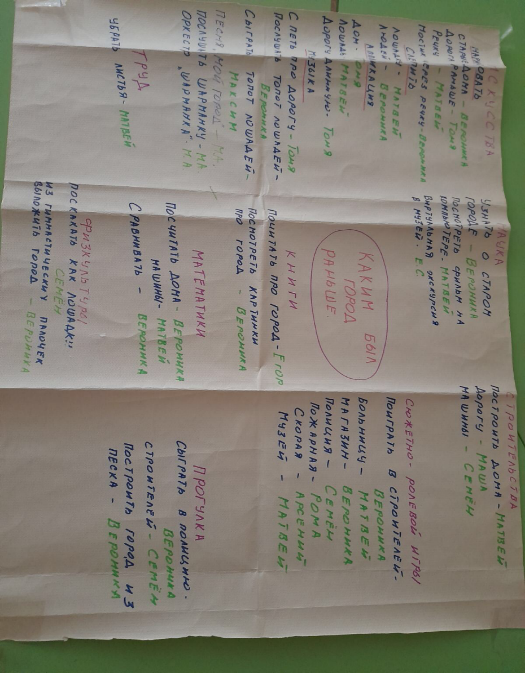 ИСКУССТВА
НАРИСОВАТЬ
СТАРЫЕ ДОМА - ВЕРОНИКА
ДОМА РАНЬШЕ - ТОНЯ
РЕЧКУ - МАТВЕЙ
МОСТИК ЧЕРЕЗ РЕЧКУ - ВЕРОНИКА
СЛЕПИТЬ
ЛОШАДКУ - МАТВЕЙ
ЛЮДЕЙ - ВЕРОНИКА
АППЛИКАЦИЯ
ДОМ - ТОНЯ
ЛОШАДЬ - МАТВЕЙ
ДОРОГУ ДЛИННУЮ - ТОНЯ
МУЗЫКА
СПЕТЬ ПРО ДОРОГУ - ТОНЯ
ПОСЛУШАТЬ ТОПОТ ЛОШАДЕЙ -
ВЕРОНИКА
СЫГРАТЬ ТОПОТ ЛОШАДЕЙ -
МАКСИМ
ПЕСНЯ "МОЙ ГОРОД" - М.А.
ПОСЛУШАТЬ ШАРМАНКУ - М.А
ОРКЕСТР "ШАРМАНКА" - М.А
ТРУД
УБРАТЬ ЛИСТЬЯ - МАТВЕЙ
НАУКА
УЗНАТЬ О СТАРОМ
ГОРОДЕ - ВЕРОНИКА
ПОСМОТРЕТЬ ФИЛЬМ НА
КОМПЬЮТЕРЕ - МАТВЕЙ
ВИРТУАЛЬНАЯ ЭКСКУРСИЯ
В МУЗЕЙ - Е.С.
КАКИМ БЫЛ
ГОРОД
РАНЬШЕ
КНИГИ
ПОЧИТАТЬ ПРО ГОРОД - ЕГОР
ПОСМОТРЕТЬ КАРТИНКИ
ПРО ГОРОД - ВЕРОНИКА
МАТЕМАТИКИ
ПОСЧИТАТЬ ДОМА - ВЕРОНИКА
МАШИНЫ - МАТВЕЙ
СРАВНИВАТЬ - ВЕРОНИКА
ФИЗКУЛЬТУРЫ
ПОСКАКАТЬ КАК ЛОШАДКИ
СЕМЁН
ИЗ ГИМНАСТИЧЕСКИХ ПАЛОЧЕК
ВЫЛОЖИТЬ ГОРОД - ВЕРОНИКА
СТРОИТЕЛЬСТВА
ПОСТРОИТЬ ДОМА - МАТВЕЙ
ДОРОГУ - МАША
МАШИНЫ - СЕМЁН
СЮЖЕТНО-РОЛЕВОЙ ИГРЫ
ПОИГРАТЬ В СТРОИТЕЛЕЙ -
ВЕРОНИКА
БОЛЬНИЦУ - МАТВЕЙ
МАГАЗИН - ВЕРОНИКА
ПОЛИЦИЯ - СЕМЁН
ПОЖАРНАЯ - РОМА
СКОРАЯ - АРСЕНИЙ
МУЗЕЙ - МАТВЕЙ
ПРОГУЛКА
СЫГРАТЬ В ПОЛИЦИЮ -
ВЕРОНИКА
СТРОИТЕЛЕЙ - СЕМЁН
ПОСТРОИТЬ ГОРОД ИЗ
ПЕСКА - ВЕРОНИКА